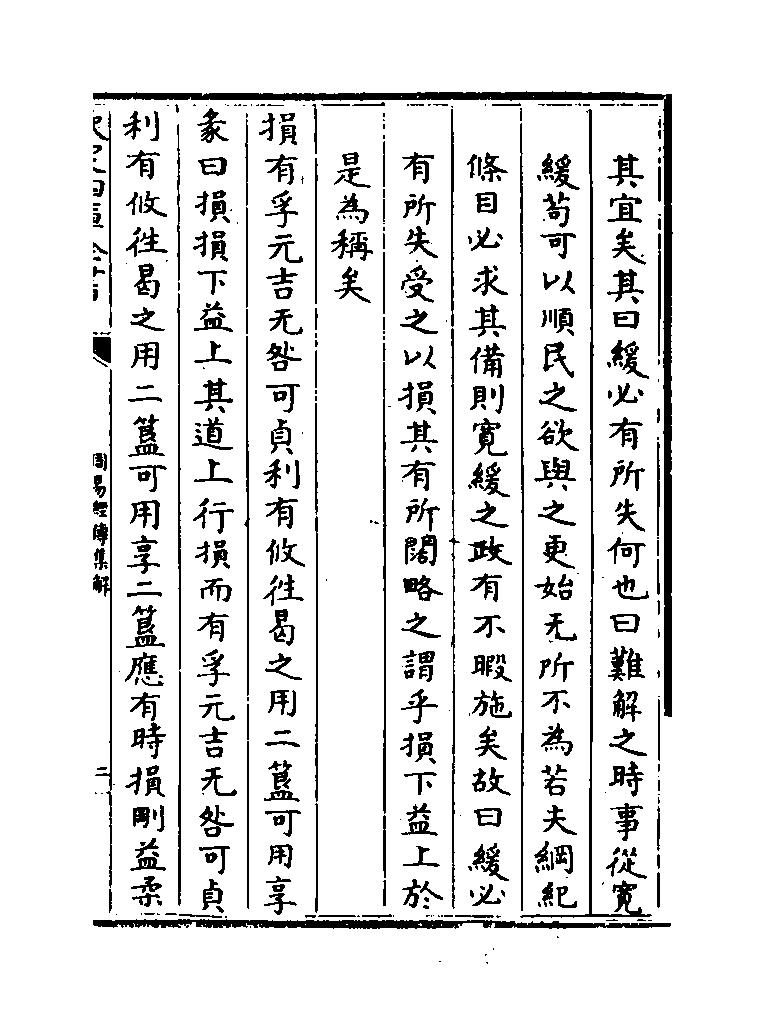 其宜矣其曰緩必有所失何也曰難解之時事從寛
緩茍可以順民之欲與之更始无所不為若夫綱紀
條目必求其備則寛緩之政有不暇施矣故曰緩必
有所失受之以損其有所闊略之謂乎損下益上於
是為稱矣
損有孚元吉无咎可貞利有攸往曷之用二簋可用享
彖曰損損下益上其道上行損而有孚元吉无咎可貞
利有攸往曷之用二簋可用享二簋應有時損剛益柔
周易經傳集解
二